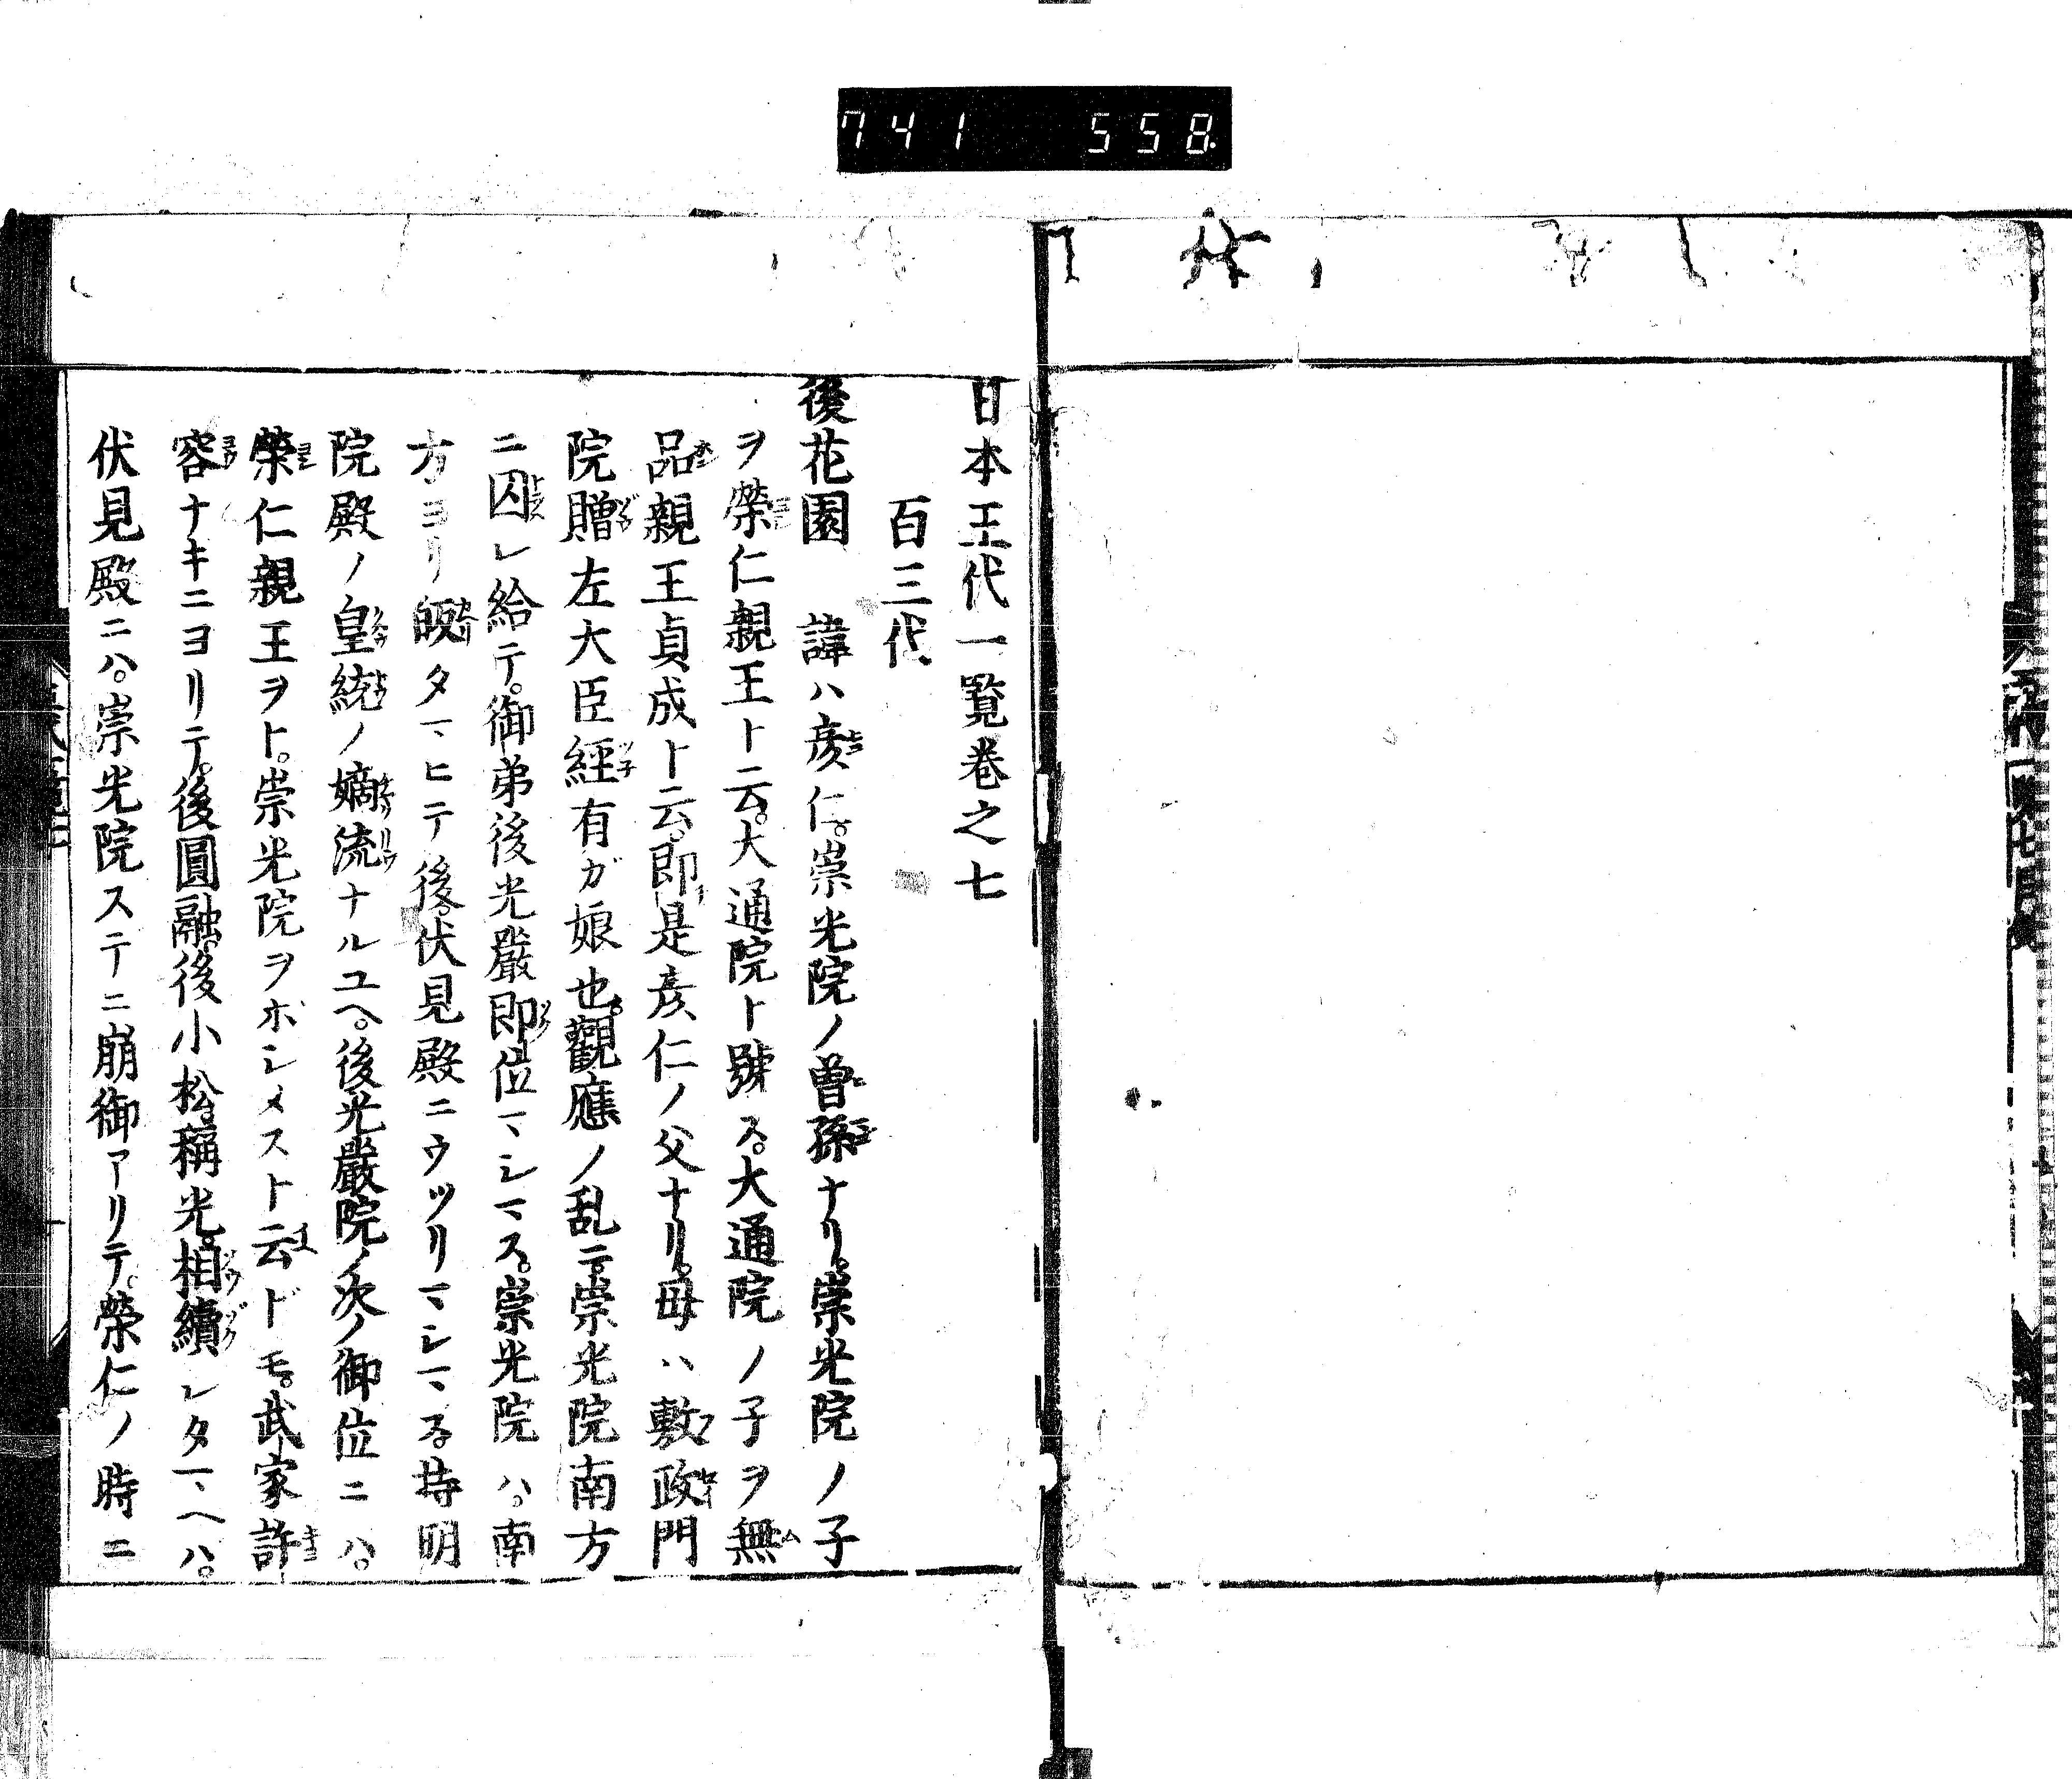 741 558
日本王代一覧巻之七
百三代
後花園 諱ハ彦仁。崇光院ノ曽孫ナリ。崇光院ノ子
ヲ榮仁親王ト云。大通院ト號ス。大通院ノ子ヲ無
品親王貞成ト云。即是彦仁ノ父ナリ。母ハ敷政門
院贈左大臣經有ガ娘也。觀應ノ乱ニ崇光院南方
ニ囚レ給テ。御弟後光嚴即位マシマス。崇光院ハ。南
方ヨリ皈タマヒテ後。伏見殿ニウツリマシマス。持明
院殿ノ皇統ノ嫡流ナルユヘ。後光嚴院ノ次ノ御位ニハ。
榮仁親王ヲト。崇光院ヲボシメスト云ドモ。武家許
容ナキニヨリテ。後圓融。後小松。稱光。相續シタマヘハ。
伏見殿ニハ。崇光院ステニ崩御アリテ。榮仁ノ時ニ